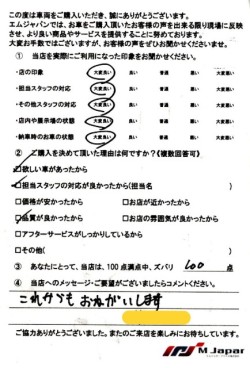 この度は車両をご購入いただき、誠にありがとうございます。
エムジャパンでは、お車をご購入頂いたお客様の声を出来る限り現場に反映
させ、より良い商品やサービスを提供することに努めております。
大変お手数ではございますが、お客様の声をぜひお聞かせくださいませ。
① 当店を実際にご利用になった印象をお聞かせください。
・店の印象 大変良い 良い 普通 悪い 大変悪い
・担当スタッフの対応 大変良い 良い 普通 悪い 大変悪い
・その他スタッフの対応 大変良い 良い 普通 悪い 大変悪い
・店内や展示場の状態 大変良い 良い 普通 悪い 大変悪い
・納車時のお車の状態 大変良い 良い 普通 悪い 大変悪い
② ご購入を決めて頂いた理由は何ですか?《複数回答可》
欲しい車があったから
□担当スタッフの対応が良かったから(担当名 )
□価格が安かったから □お店が近かったから
品質が良かったから □お店の雰囲気が良かったから
□アフターサービスがしっかりしているから
□その他( )
③ あなたにとって、当店は、100点満点中、ズバリ 100 点
④ 当店へのメッセージ・ご要望がございましたらコメントください。
これからもおねがいします
ご協力ありがとうございました。またのご来店を楽しみにお待ちしています。
M Japan